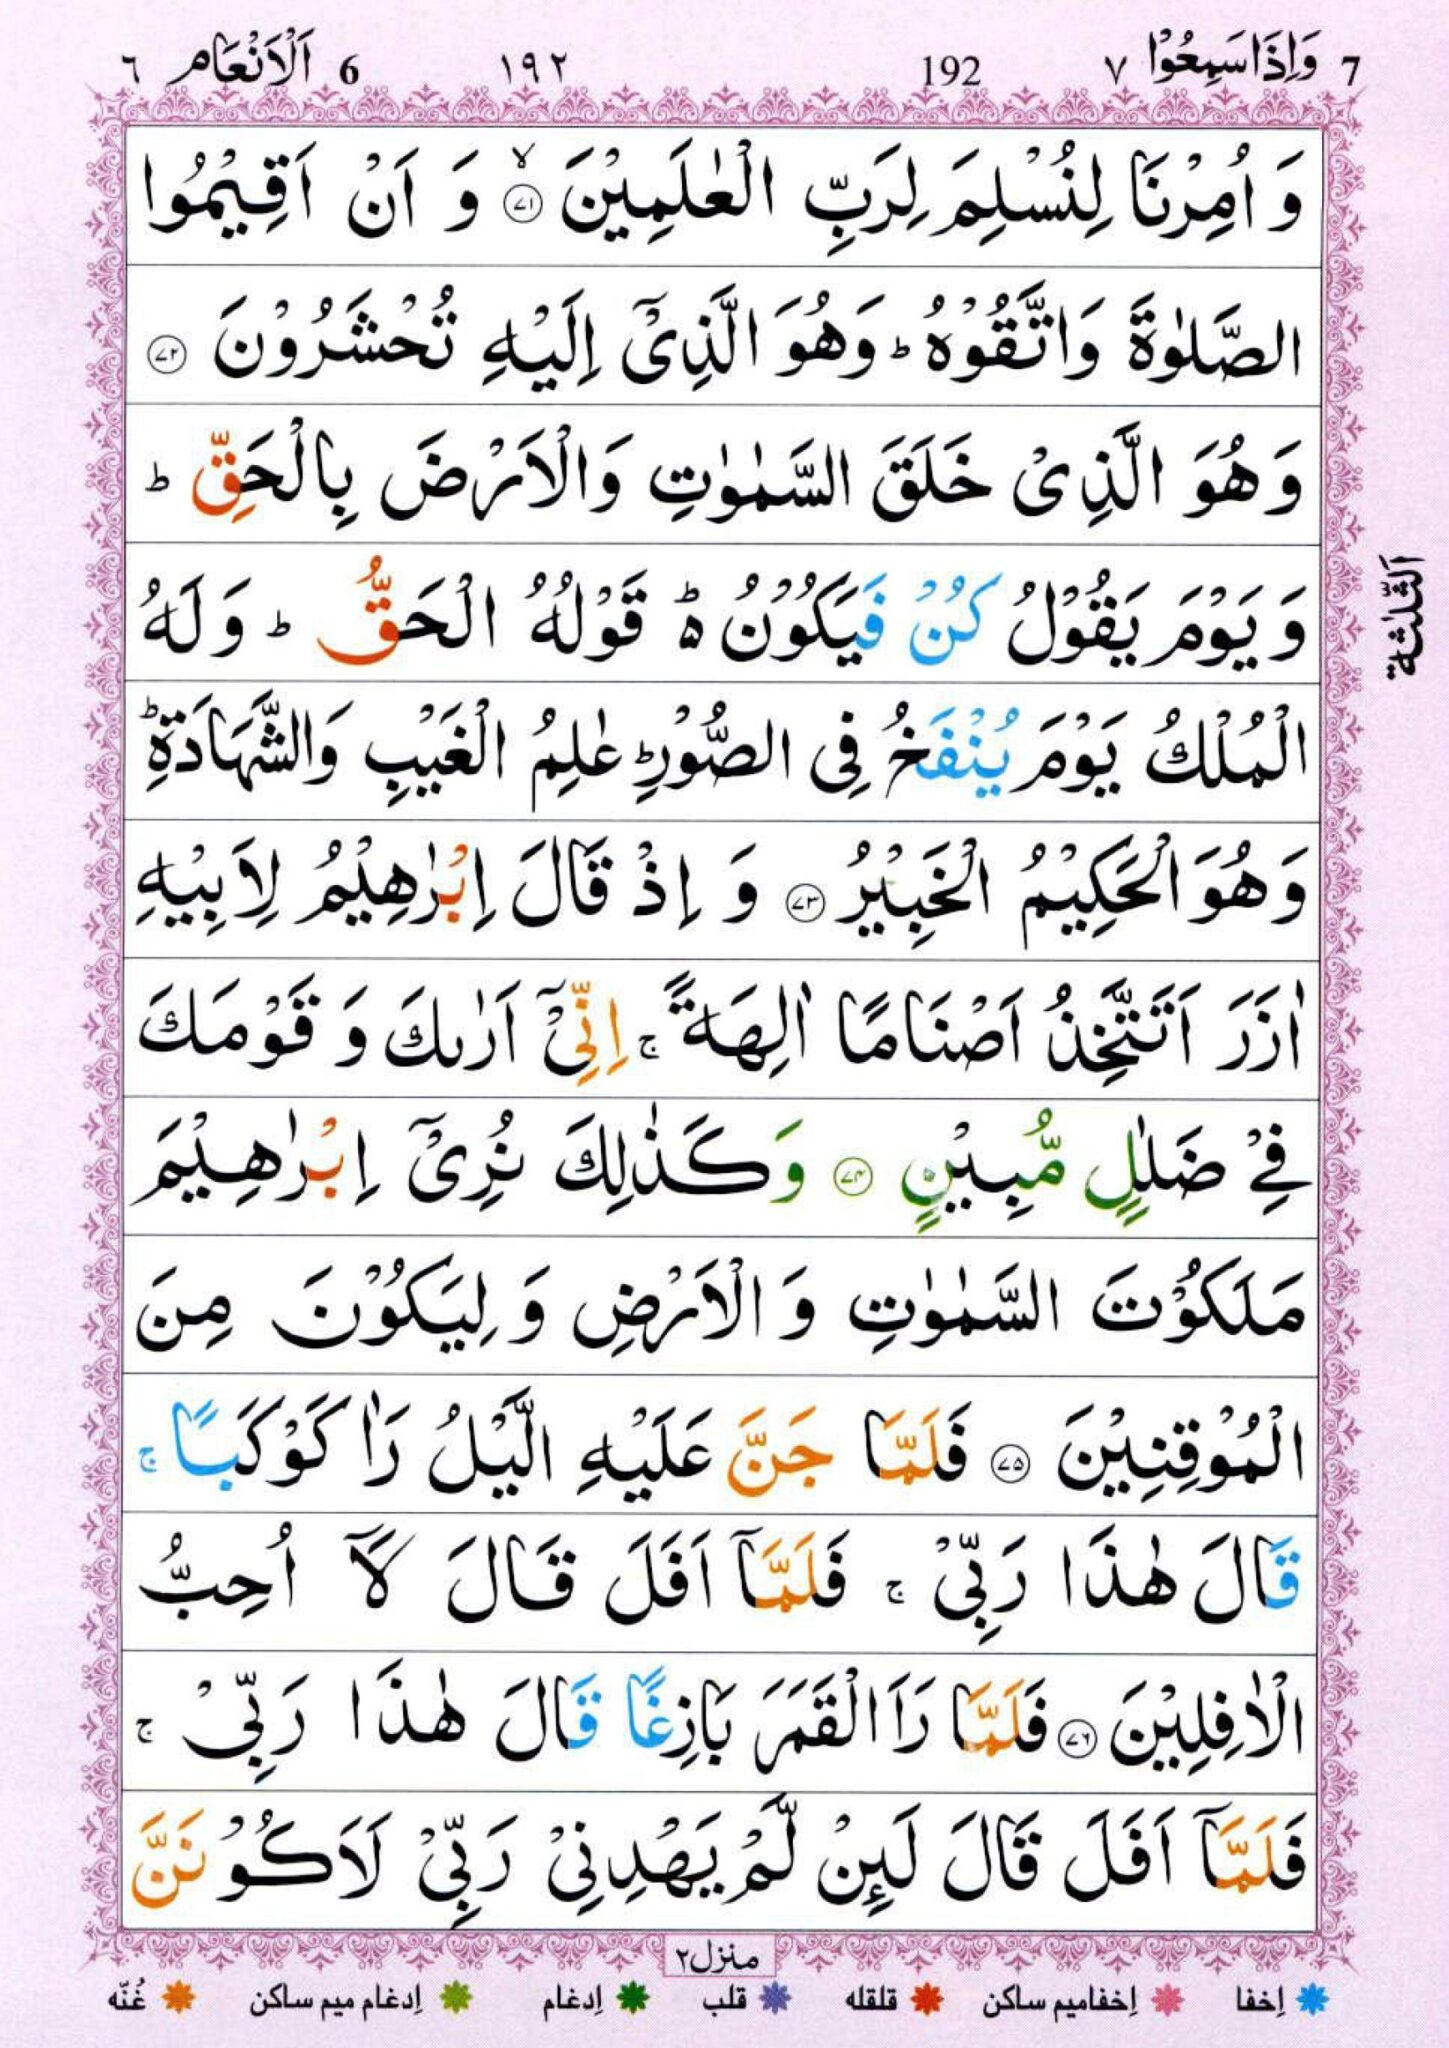 7 وَاِذَا سَمِعُوْا ٧ 192 ١٩٢ 6 اَلْاَنْعَام ٦
وَ اُمِرْنَا لِنُسْلِمَ لِرَبِّ الْعٰلَمِيْنَ ۙ‏﴿۷۱﴾ وَ اَنْ اَقِيْمُوا
الصَّلٰوةَ وَاتَّقُوْهُ ؕ وَهُوَ الَّذِىْۤ اِلَيْهِ تُحْشَرُوْنَ ﴿۷۲﴾
وَهُوَ الَّذِىْ خَلَقَ السَّمٰوٰتِ وَالْاَرْضَ بِالْحَقِّ ؕ
وَ يَوْمَ يَقُوْلُ كُنْ فَيَكُوْنُ ؕ۬ قَوْلُهُ الْحَقُّ ؕ وَلَهُ
الْمُلْكُ يَوْمَ يُنْفَخُ فِى الصُّوْرِ ؕ عٰلِمُ الْغَيْبِ وَالشَّهَادَةِ ؕ
وَهُوَ الْحَكِيْمُ الْخَبِيْرُ ﴿۷۳﴾ وَ اِذْ قَالَ اِبْرٰهِيْمُ لِاَبِيْهِ
اٰزَرَ اَتَتَّخِذُ اَصْنَامًا اٰلِهَةً ۚ اِنِّىْۤ اَرٰٮكَ وَ قَوْمَكَ
فِىْ ضَلٰلٍ مُّبِيْنٍ ﴿۷۴﴾ وَكَذٰلِكَ نُرِىْۤ اِبْرٰهِيْمَ
مَلَكُوْتَ السَّمٰوٰتِ وَ الْاَرْضِ وَ لِيَكُوْنَ مِنَ
الْمُوْقِنِيْنَ ﴿۷۵﴾ فَلَمَّا جَنَّ عَلَيْهِ الَّيْلُ رَاٰ كَوْكَبًا ۚ
قَالَ هٰذَا رَبِّىْ ۚ فَلَمَّاۤ اَفَلَ قَالَ لَاۤ اُحِبُّ
الْاٰفِلِيْنَ ﴿۷۶﴾ فَلَمَّا رَاَ الْقَمَرَ بَازِغًا قَالَ هٰذَا رَبِّىْ ۚ
فَلَمَّاۤ اَفَلَ قَالَ لَئِنْ لَّمْ يَهْدِنِىْ رَبِّىْ لَاَكُوْنَنَّ
اَلثَّلٰثَة
منزل۲
اِخفا اِخفامیم ساکن قلقله قلب اِدغام اِدغام میم ساکن غُنّه